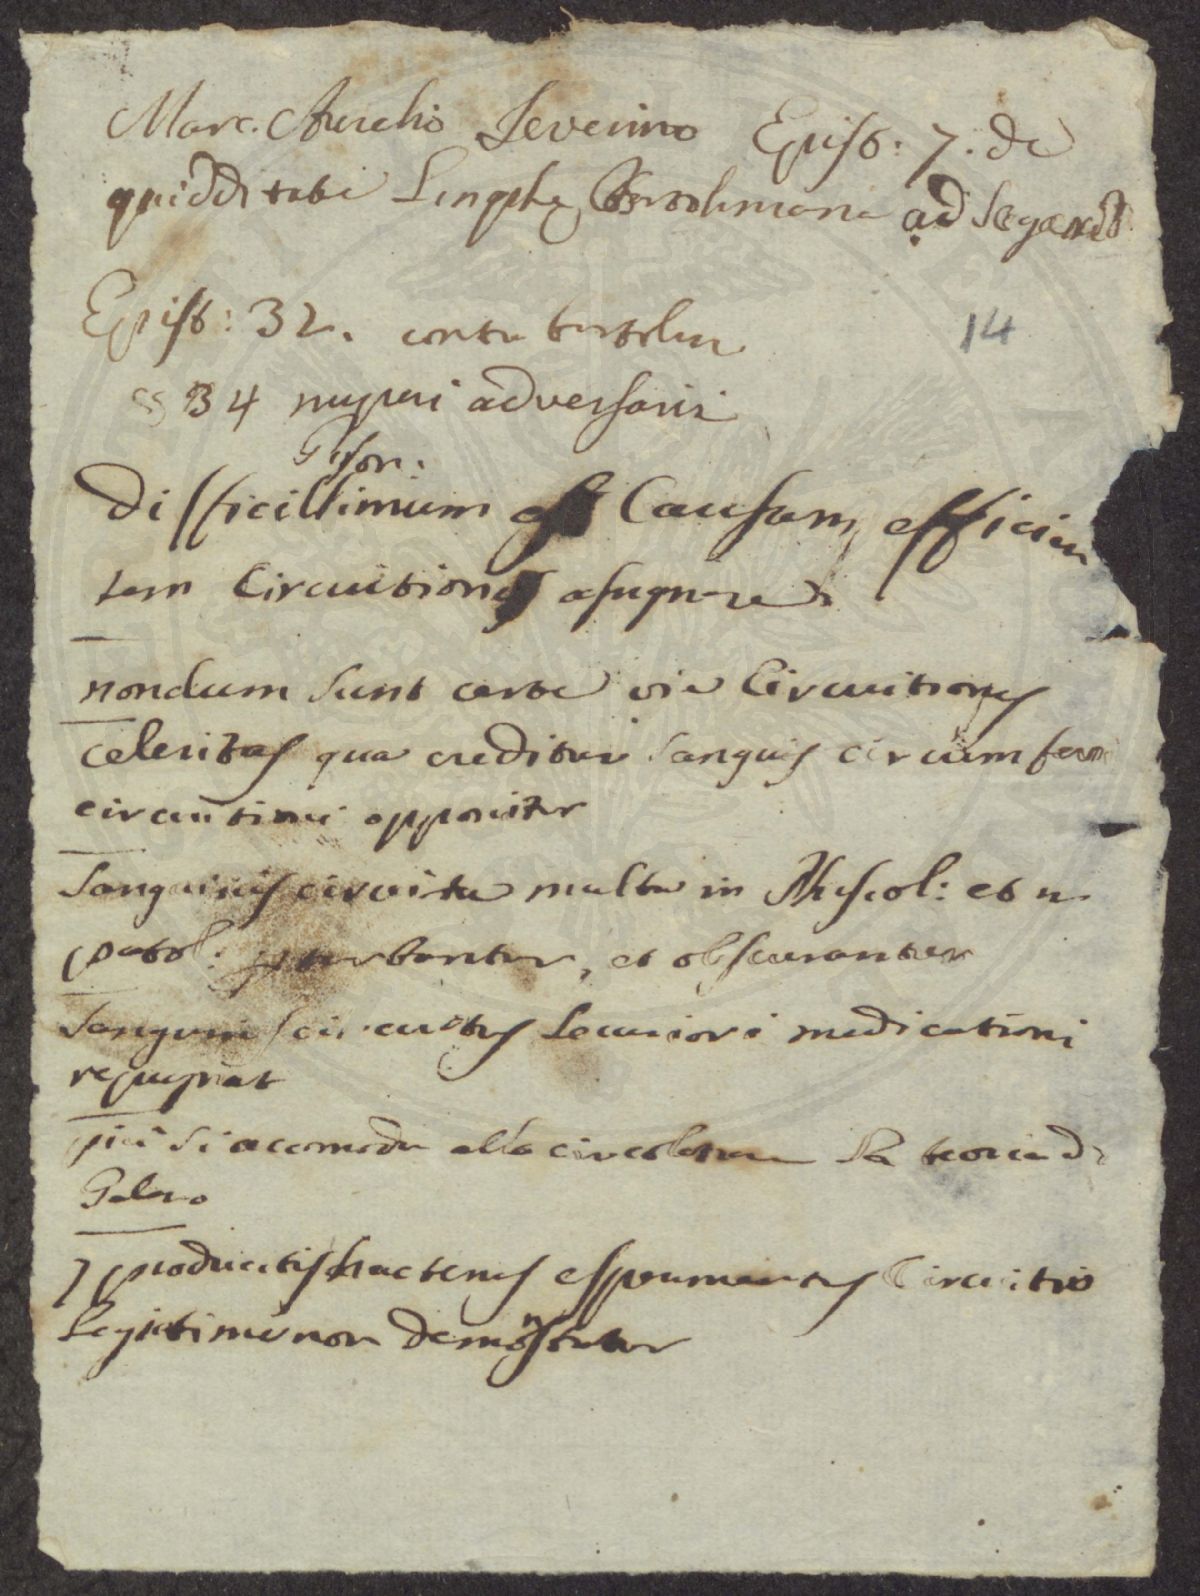 Marc. Aurelio Severino Epist: 7. de
quidditate Limphę Bartoliniana ad
Epist: 32. contra bartolin
14
34 nuperi adversarii
difficillimum est Causam efficien
tem Circuitionis assignare
nondum sunt certe vie Circuitionis
celeritas qua creditur sanguis circumferri
circuitioni opponitur
Sanguinis circuitu multa in Phisiol: et in
patol: perturbantur, et obscurantur
Sanguinis circuitus securiori medicationi
repugnat
più si accomoda alla circolazione la teoria di
Galeno
productis hactenus esperimentis Circuitio
legittime non demonstratur